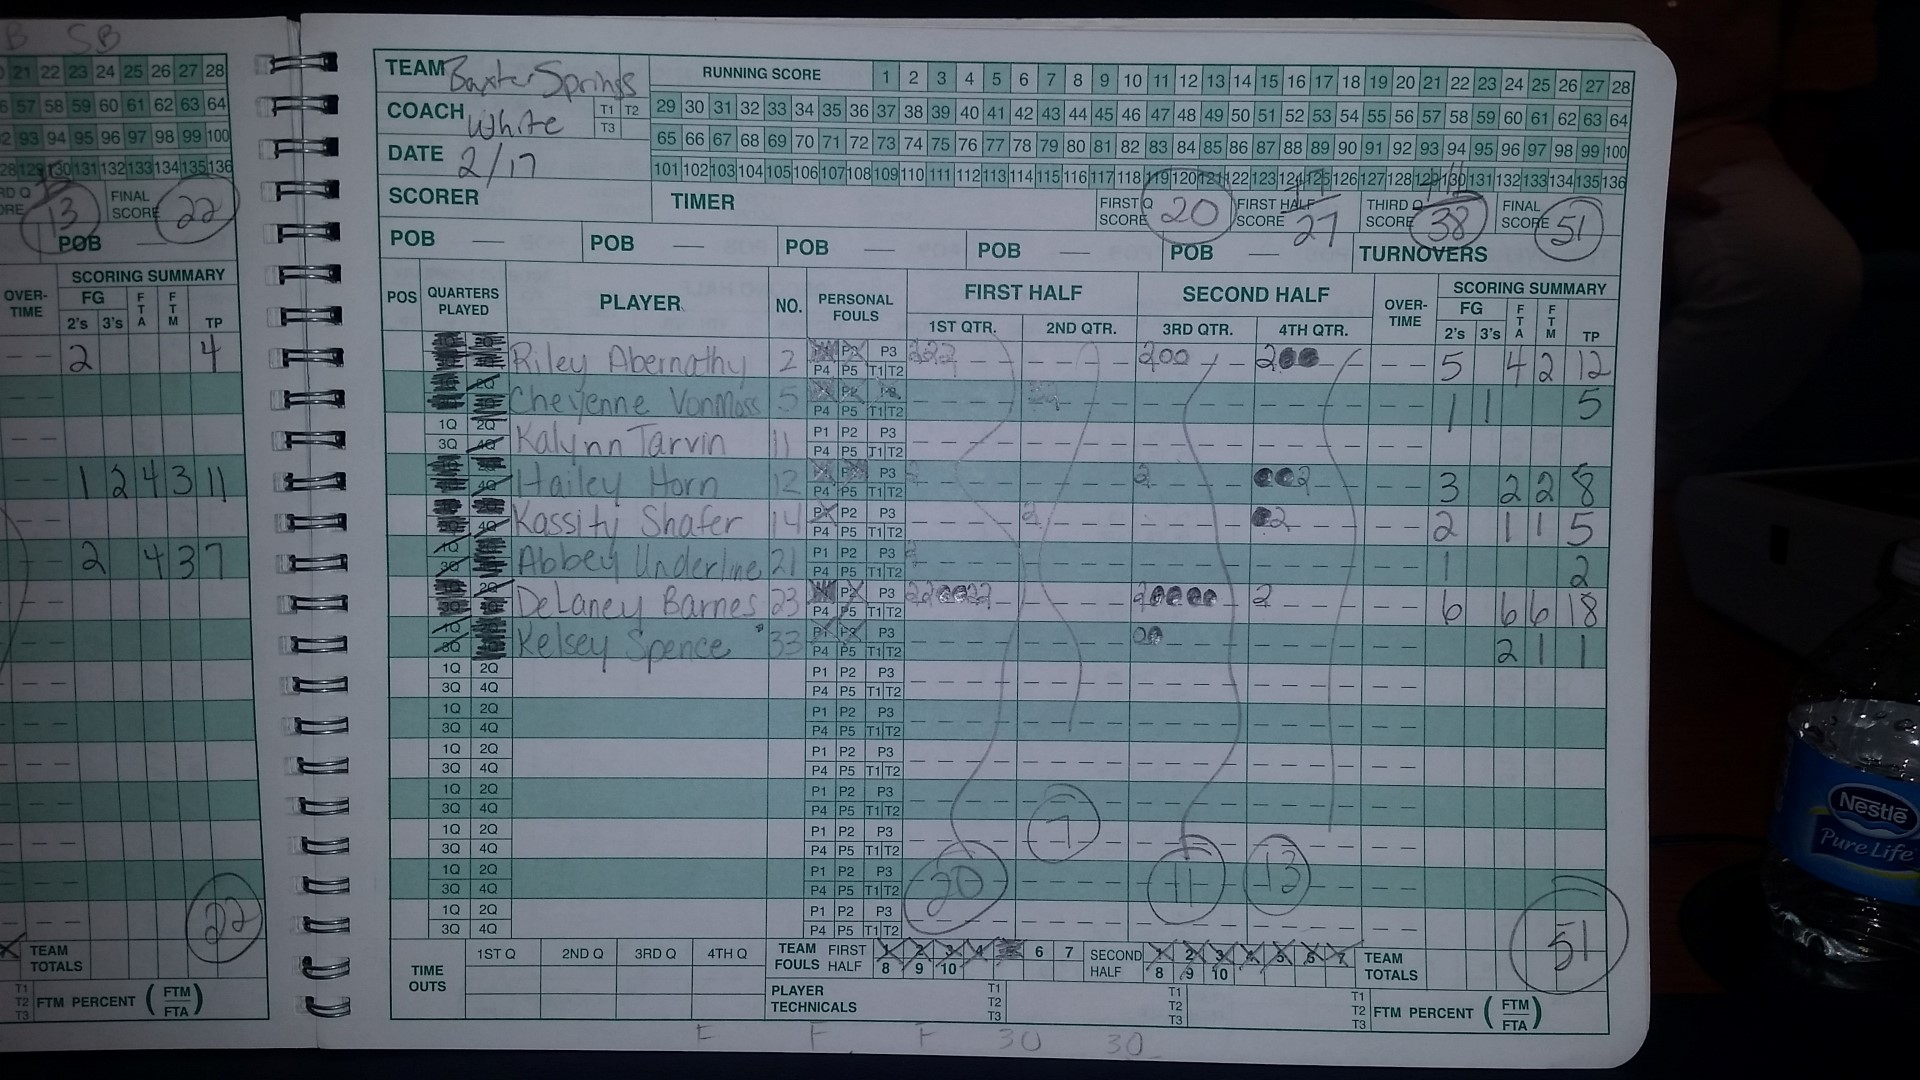 B SB
21 22 23 24 25 26 27 28
57 58 59 60 61 62 63 64
93 94 95 96 97 98 99 100
129 130 131 132 133 134 135 136
13 FINAL SCORE 22
POB
SCORING SUMMARY
OVER-TIME FG FTA FTM
2's 3's TP
2 4
1 2 4 3 11
2 4 3 7
22
TEAM TOTALS
T1 T2 T3 FTM PERCENT (FTM/FTA)
TEAM Baxter Springs RUNNING SCORE 1 2 3 4 5 6 7 8 9 10 11 12 13 14 15 16 17 18 19 20 21 22 23 24 25 26 27 28
COACH White T1 T2 T3 29 30 31 32 33 34 35 36 37 38 39 40 41 42 43 44 45 46 47 48 49 50 51 52 53 54 55 56 57 58 59 60 61 62 63 64
65 66 67 68 69 70 71 72 73 74 75 76 77 78 79 80 81 82 83 84 85 86 87 88 89 90 91 92 93 94 95 96 97 98 99 100
DATE 2/17 101 102 103 104 105 106 107 108 109 110 111 112 113 114 115 116 117 118 119 120 121 122 123 124 125 126 127 128 129 130 131 132 133 134 135 136
SCORER TIMER FIRST Q SCORE 20 FIRST HALF SCORE 27 THIRD Q SCORE 38 FINAL SCORE 51
POB POB POB POB POB TURNOVERS
POS QUARTERS PLAYED PLAYER NO. PERSONAL FOULS FIRST HALF SECOND HALF OVER-TIME SCORING SUMMARY
1ST QTR. 2ND QTR. 3RD QTR. 4TH QTR. FG 2's 3's FTA FTM TP
Riley Abernathy 2 P3 222 200 2 5 4 2 12
P4 P5 T1 T2
Cheyenne VonMoss 5 1 1 5
P4 P5 T1 T2
1Q 2Q Kalynn Tarvin 11 P1 P2 P3
3Q 4Q P4 P5 T1 T2
Hailey Horn 12 P3 2 2 3 2 2 8
4Q P4 P5 T1 T2
Kassity Shafer 14 P2 P3 2 2 2 1 1 5
4Q P4 P5 T1 T2
1Q Abbey Underline 21 P1 P2 P3 2 1 2
3Q P4 P5 T1 T2
2Q DeLaney Barnes 23 P2 P3 2 6 6 6 18
P4 P5 T1 T2
1Q Kelsey Spence 33 P1 P2 P3 2 1 1
3Q P4 P5 T1 T2
1Q 2Q P1 P2 P3
3Q 4Q P4 P5 T1 T2
1Q 2Q P1 P2 P3
3Q 4Q P4 P5 T1 T2
1Q 2Q P1 P2 P3
3Q 4Q P4 P5 T1 T2
1Q 2Q P1 P2 P3
3Q 4Q P4 P5 T1 T2
1Q 2Q P1 P2 P3 7
3Q 4Q P4 P5 T1 T2
1Q 2Q P1 P2 P3 20 11 13
3Q 4Q P4 P5 T1 T2
1Q 2Q P1 P2 P3
3Q 4Q P4 P5 T1 T2 51
TIME OUTS 1ST Q 2ND Q 3RD Q 4TH Q TEAM FOULS FIRST HALF 1 2 3 4 6 7 8 9 10 SECOND HALF 1 2 3 4 5 6 7 8 9 10 TEAM TOTALS
PLAYER TECHNICALS T1 T2 T3 T1 T2 T3 T1 T2 T3 FTM PERCENT (FTM/FTA)
F F F 30 30
Nestlé
Pure Life